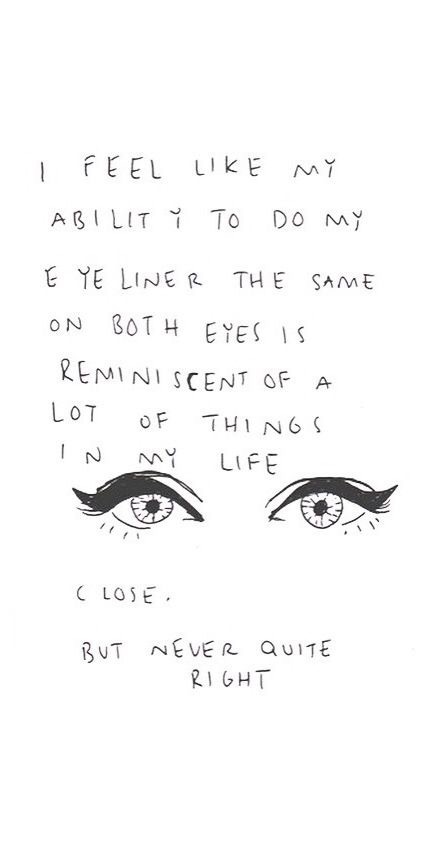 I FEEL LIKE MY
ABILITY TO DO MY
EYELINER THE SAME
ON BOTH EYES IS
REMINISCENT OF A
LOT OF THINGS
IN MY LIFE
CLOSE.
BUT NEVER QUITE
RIGHT